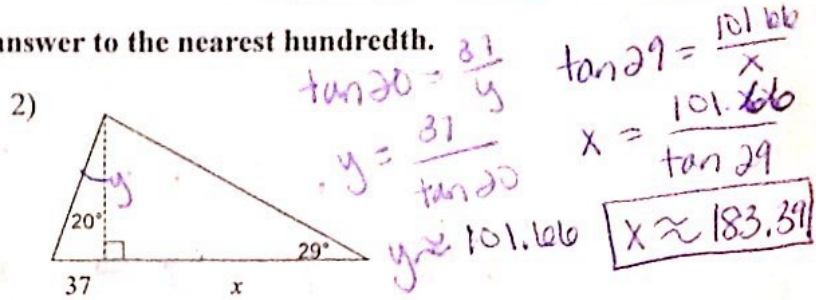 answer to the nearest hundredth.
2)
20°
y
29°
37
x
tan20 = 37/y
y = 37/tan20
y ≈ 101.66
tan29 = 101.66/x
x = 101.66/tan29
x ≈ 183.39